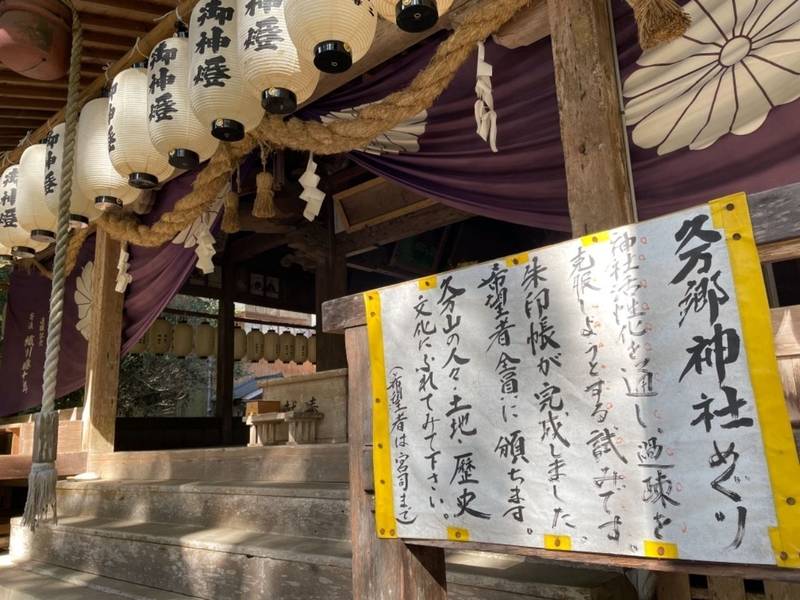 久万郷神社めぐり
神社活性化を通し、過疎を
克服しようとする試みです。
朱印帳が完成しました。
希望者全員に頒ちます。
久万山の人々・土地・歴史
文化にふれてみて下さい。
(希望者は宮司まで)
御神燈
御神燈
御神燈
御神燈
御神燈
御神燈
御神燈